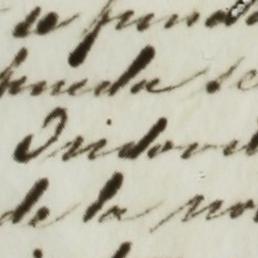 se funda
pueda se
Indovi
de la no